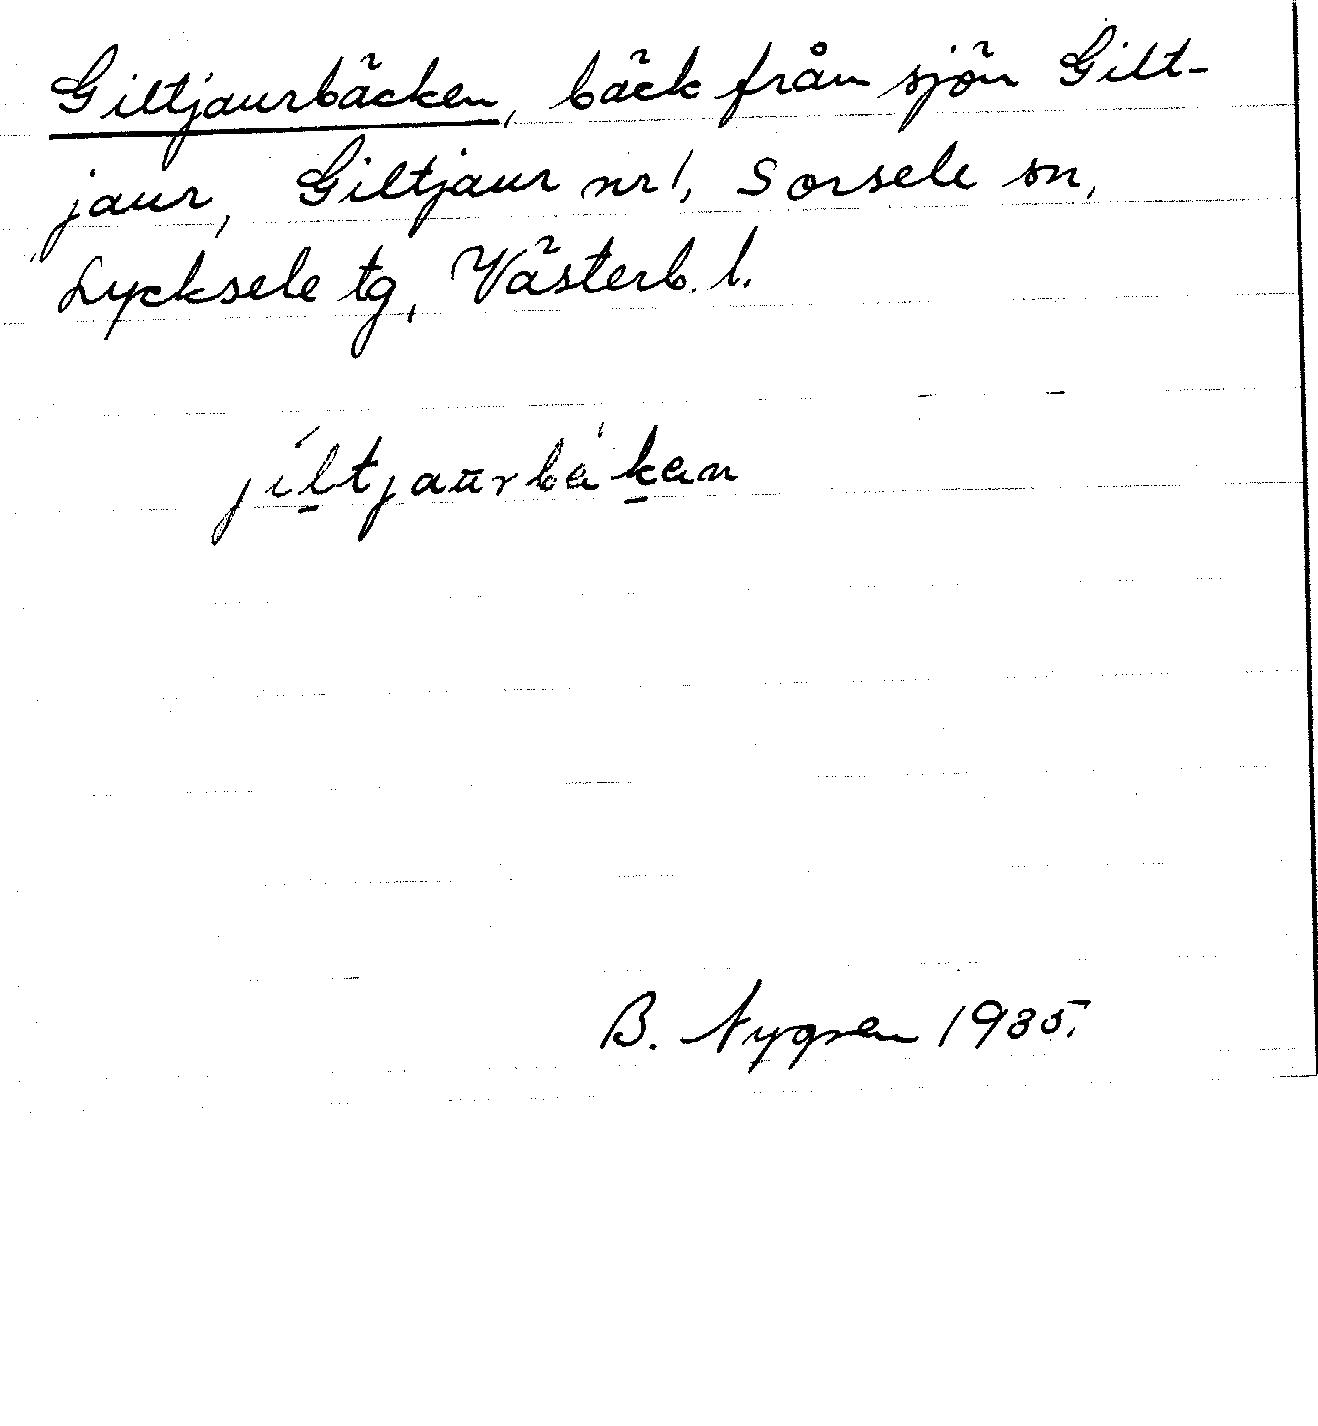 Giltjaurbäcken, bäck från sjön Gilt-
jaur, Giltjaur nr 1, Sorsele sn,
Lycksele tg, Västerb. l.
jíl̠tjaurbäk̠en
B. Nygren 1935.